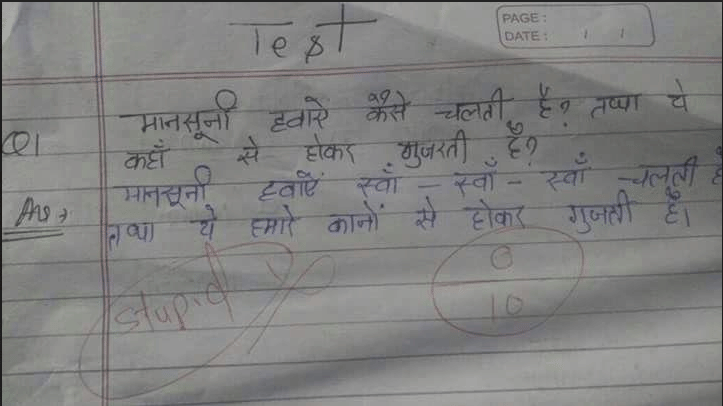 Test
PAGE:
DATE: / /
Q1 मानसूनी हवाऐ कैसे चलती है? तथा ये
कहाँ से होकर गुजरती है?
Ans → मानसूनी हवाऐं स्वाँ - स्वाँ - स्वाँ चलती है
तथा ये हमारे कानों से होकर गुजती है।
Stupid
0
10